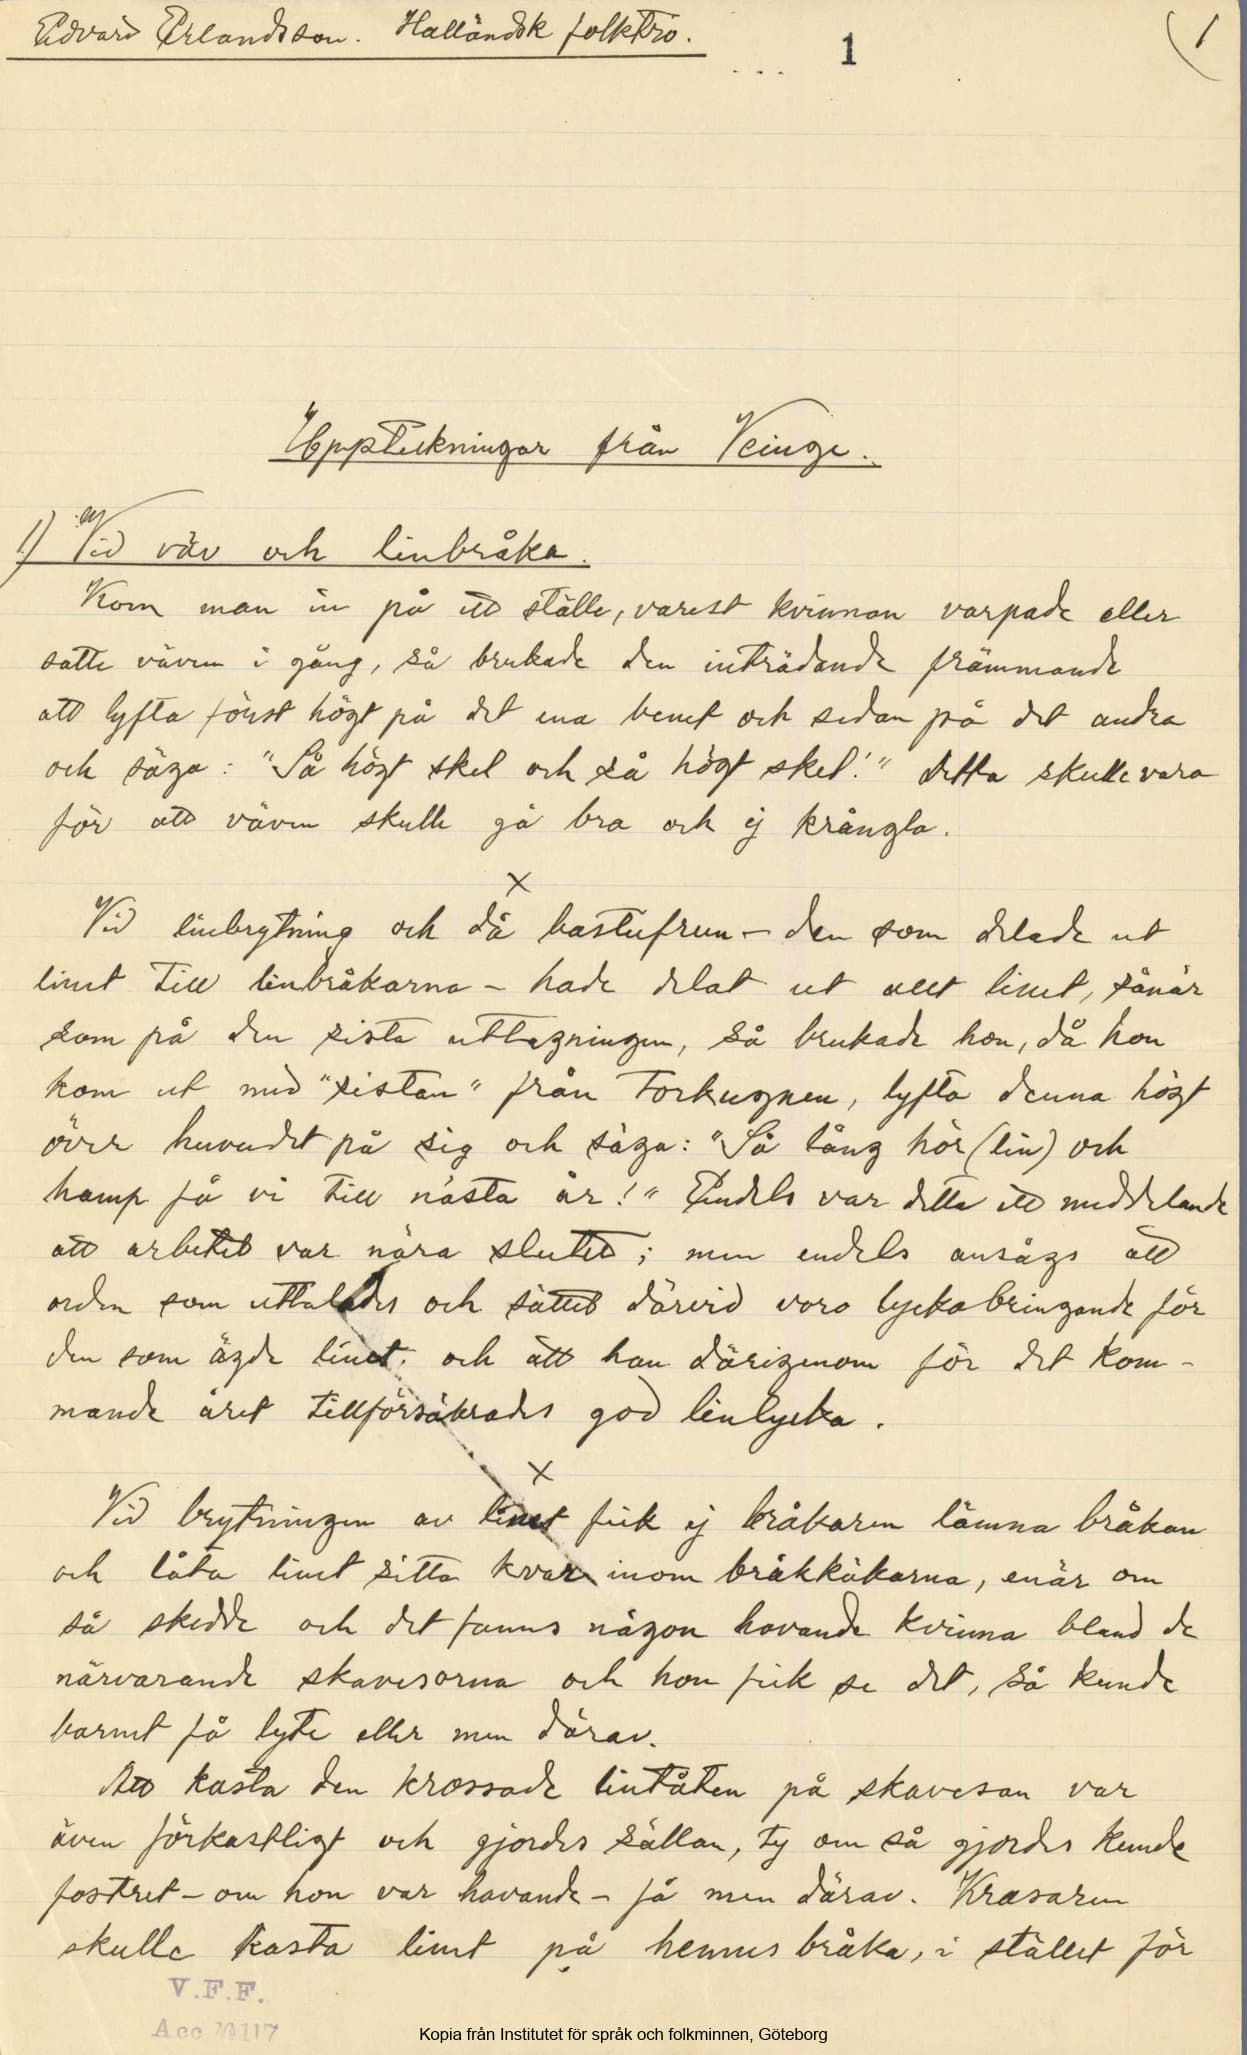 Edvard Erlandsson. Halländsk folktro.
1
1
Uppteckningar från Veinge.
1) Vid väv och linbråka.
Kom man in på ett ställe, varest kvinnan varpade eller
satte väven i gång, så brukade den inträdande främmande
att lyfta först högt på det ena benet och sedan på det andra
och säga: "Så högt skel och så högt skel!" Detta skulle vara
för att väven skulle gå bra och ej krångla.
x
Vid linbrytning och då bastufrun – den som delade ut
linet till linbråkarna – hade delat ut allt linet, sånär
som på den sista uttagningen, så brukade hon, då hon
kom ut med "sistan" från torkugnen, lyfta denna högt
över huvudet på sig och säga: "Så lång hör (lin) och
hamp få vi till nästa år!" Endels var detta ett meddelande
att arbetet var nära slutet; men endels ansågs att
orden som uttalades och sättet därvid voro lyckobringande för
den som ägde linet, och att han därigenom för det kom-
mande året tillförsäkrades god linlycka.
x
Vid brytningen av linet fick ej bråkaren lämna bråkan
och låta linet sitta kvar inom bråkkäkarna, enär om
så skedde och det fanns någon havande kvinna bland de
närvarande skavesorna och hon fick se det, så kunde
barnet få lyte eller men därav.
Att kasta den krossade lintåten på skavesan var
även förkastligt och gjordes sällan, ty om så gjordes kunde
fostret – om hon var havande – få men därav. Krasaren
skulle kasta linet på hennes bråka, i stället för
V.F.F.
Acc № 117
Kopia från Institutet för språk och folkminnen, Göteborg